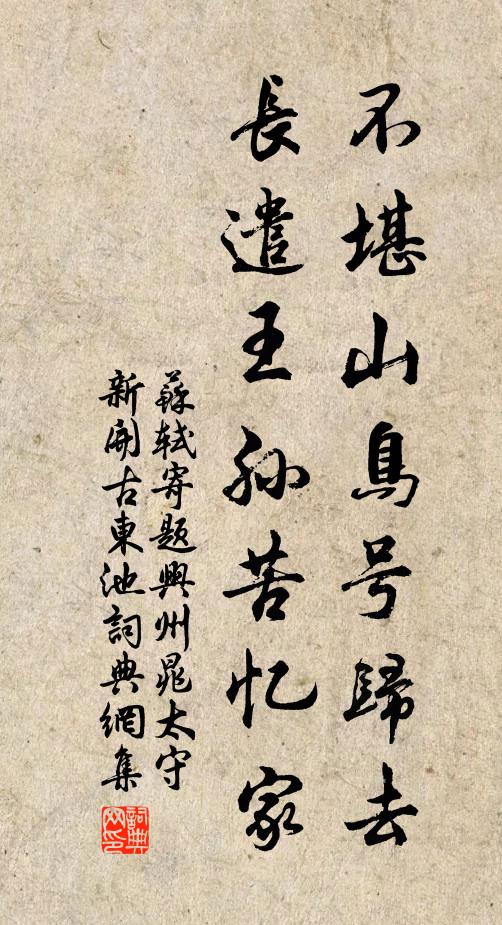 不堪山鳥号歸去
長遣王孙苦忆家
蘇軾寄题興州晁太守
新開古東池詞典網集
詞典
网印